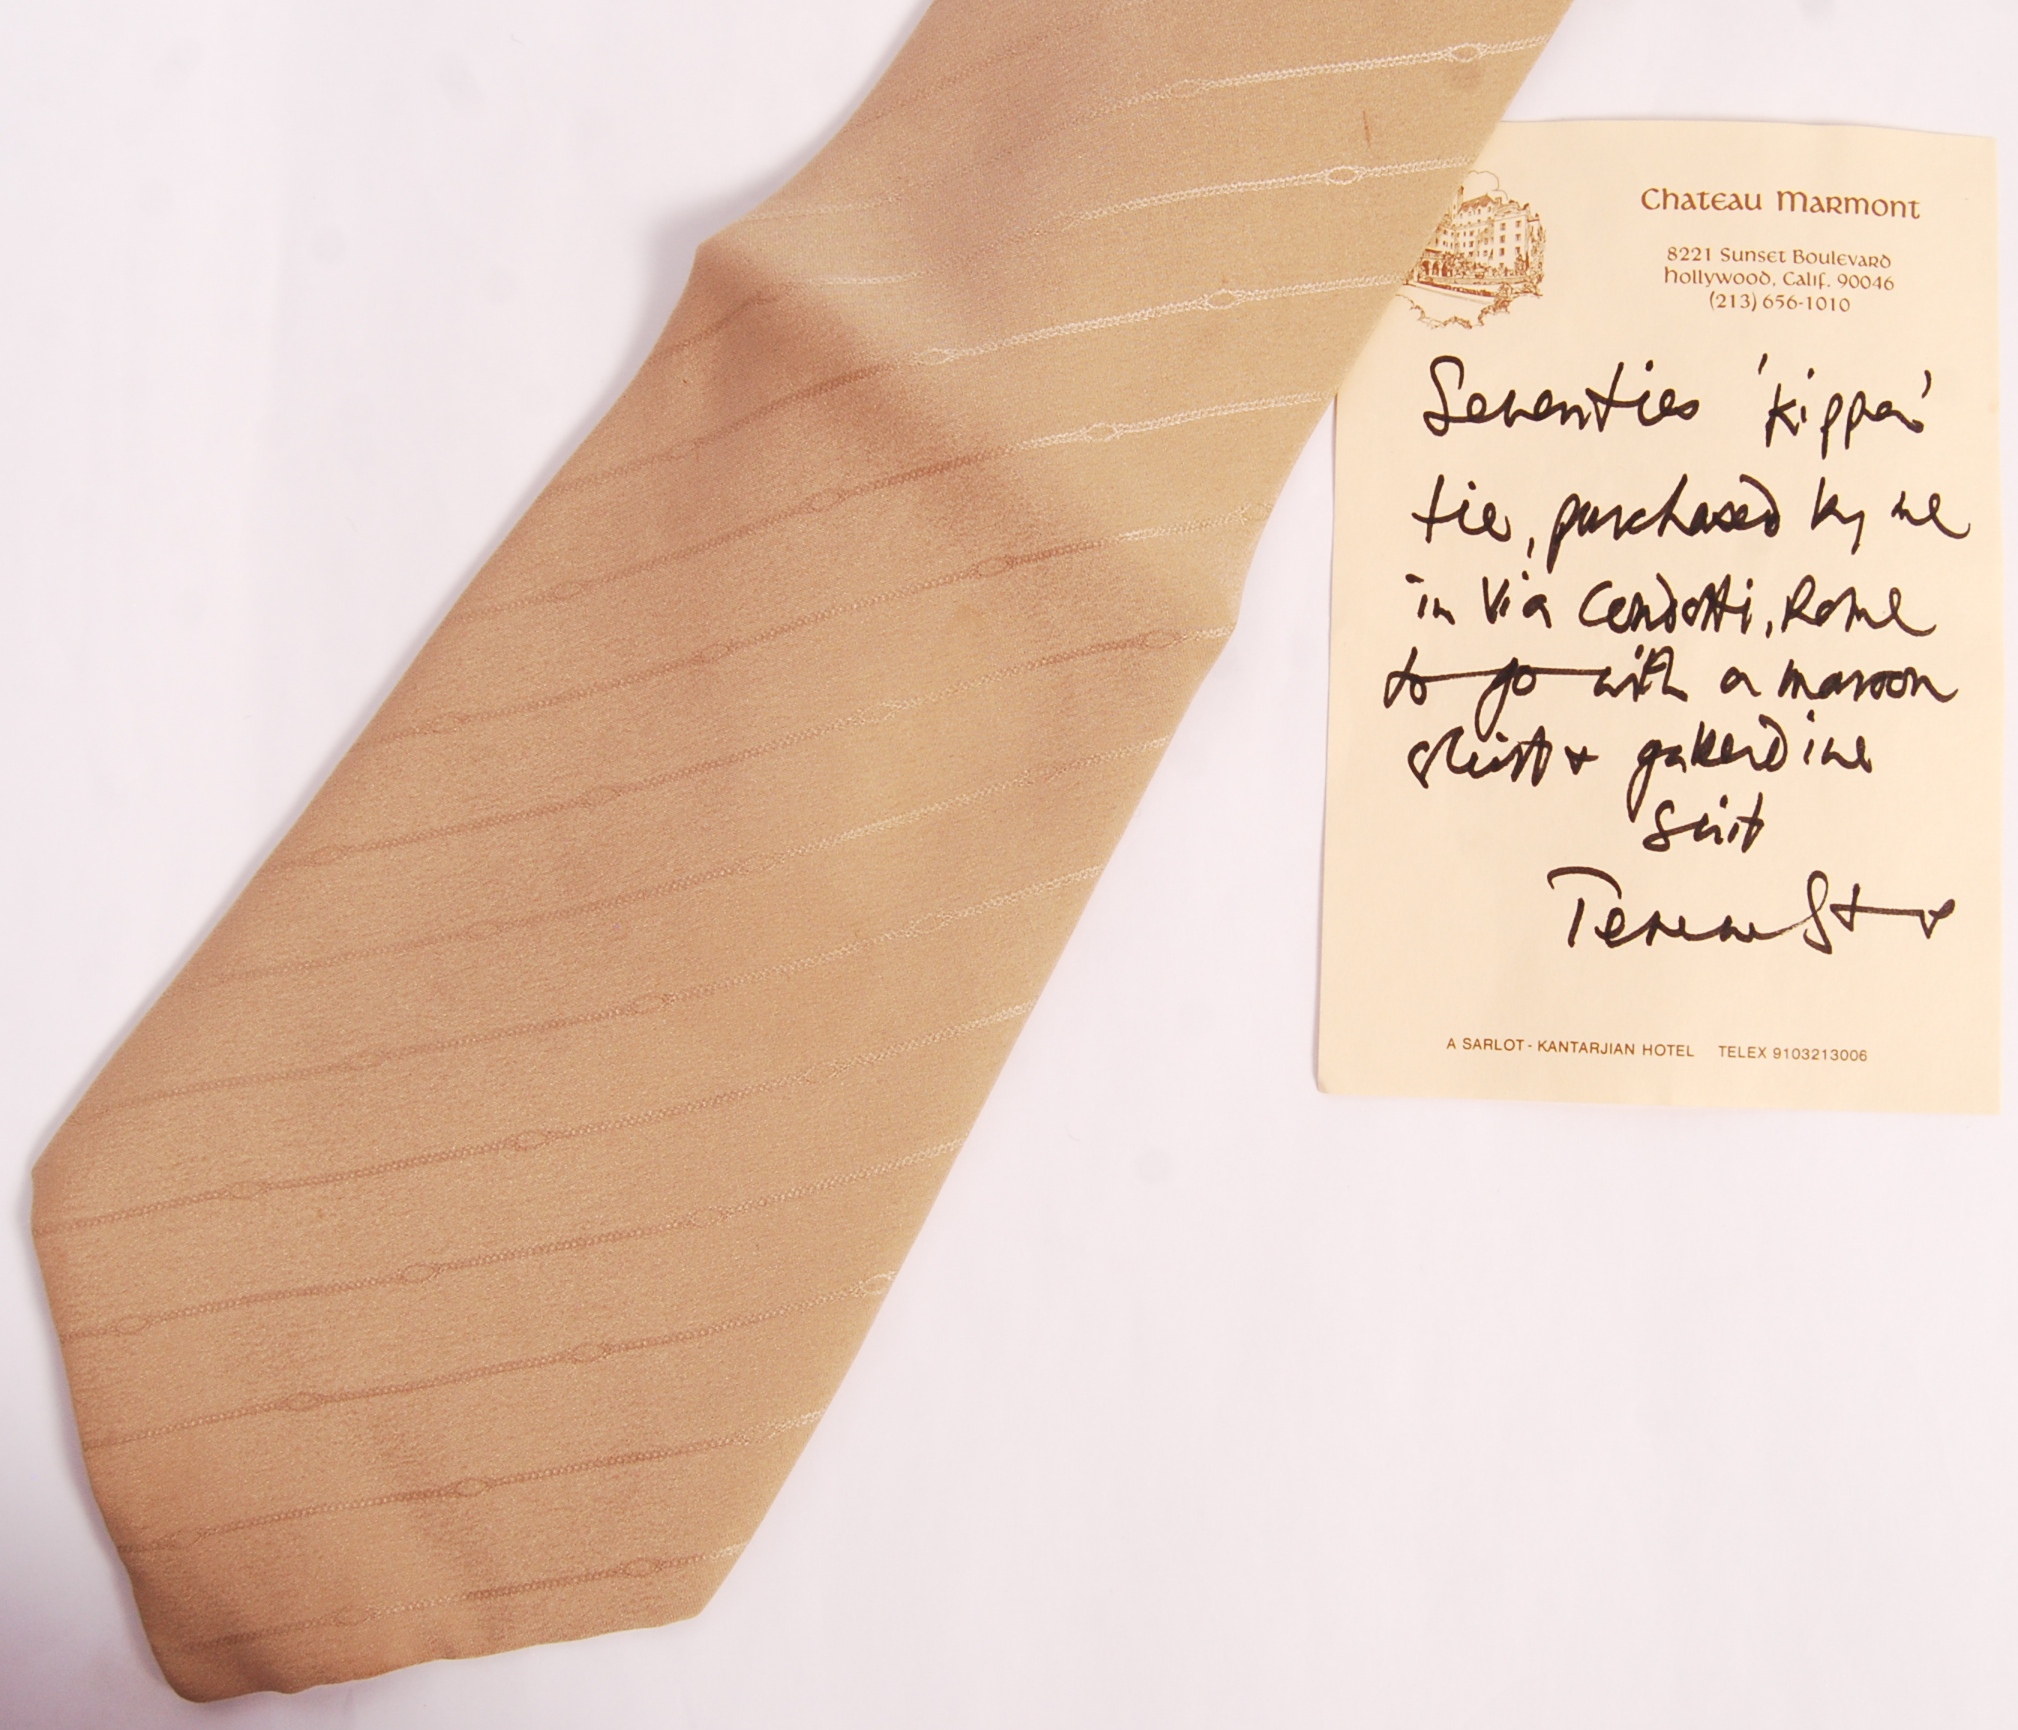 Chateau Marmont
8221 Sunset Boulevard
Hollywood, Calif. 90046
(213) 656-1010
Seventies 'kipper'
tie, purchased by me
in Via Condotti, Rome
to go with a maroon
shirt + gaberdine
suit
Terence St
A SARLOT-KANTARJIAN HOTEL TELEX 9103213006